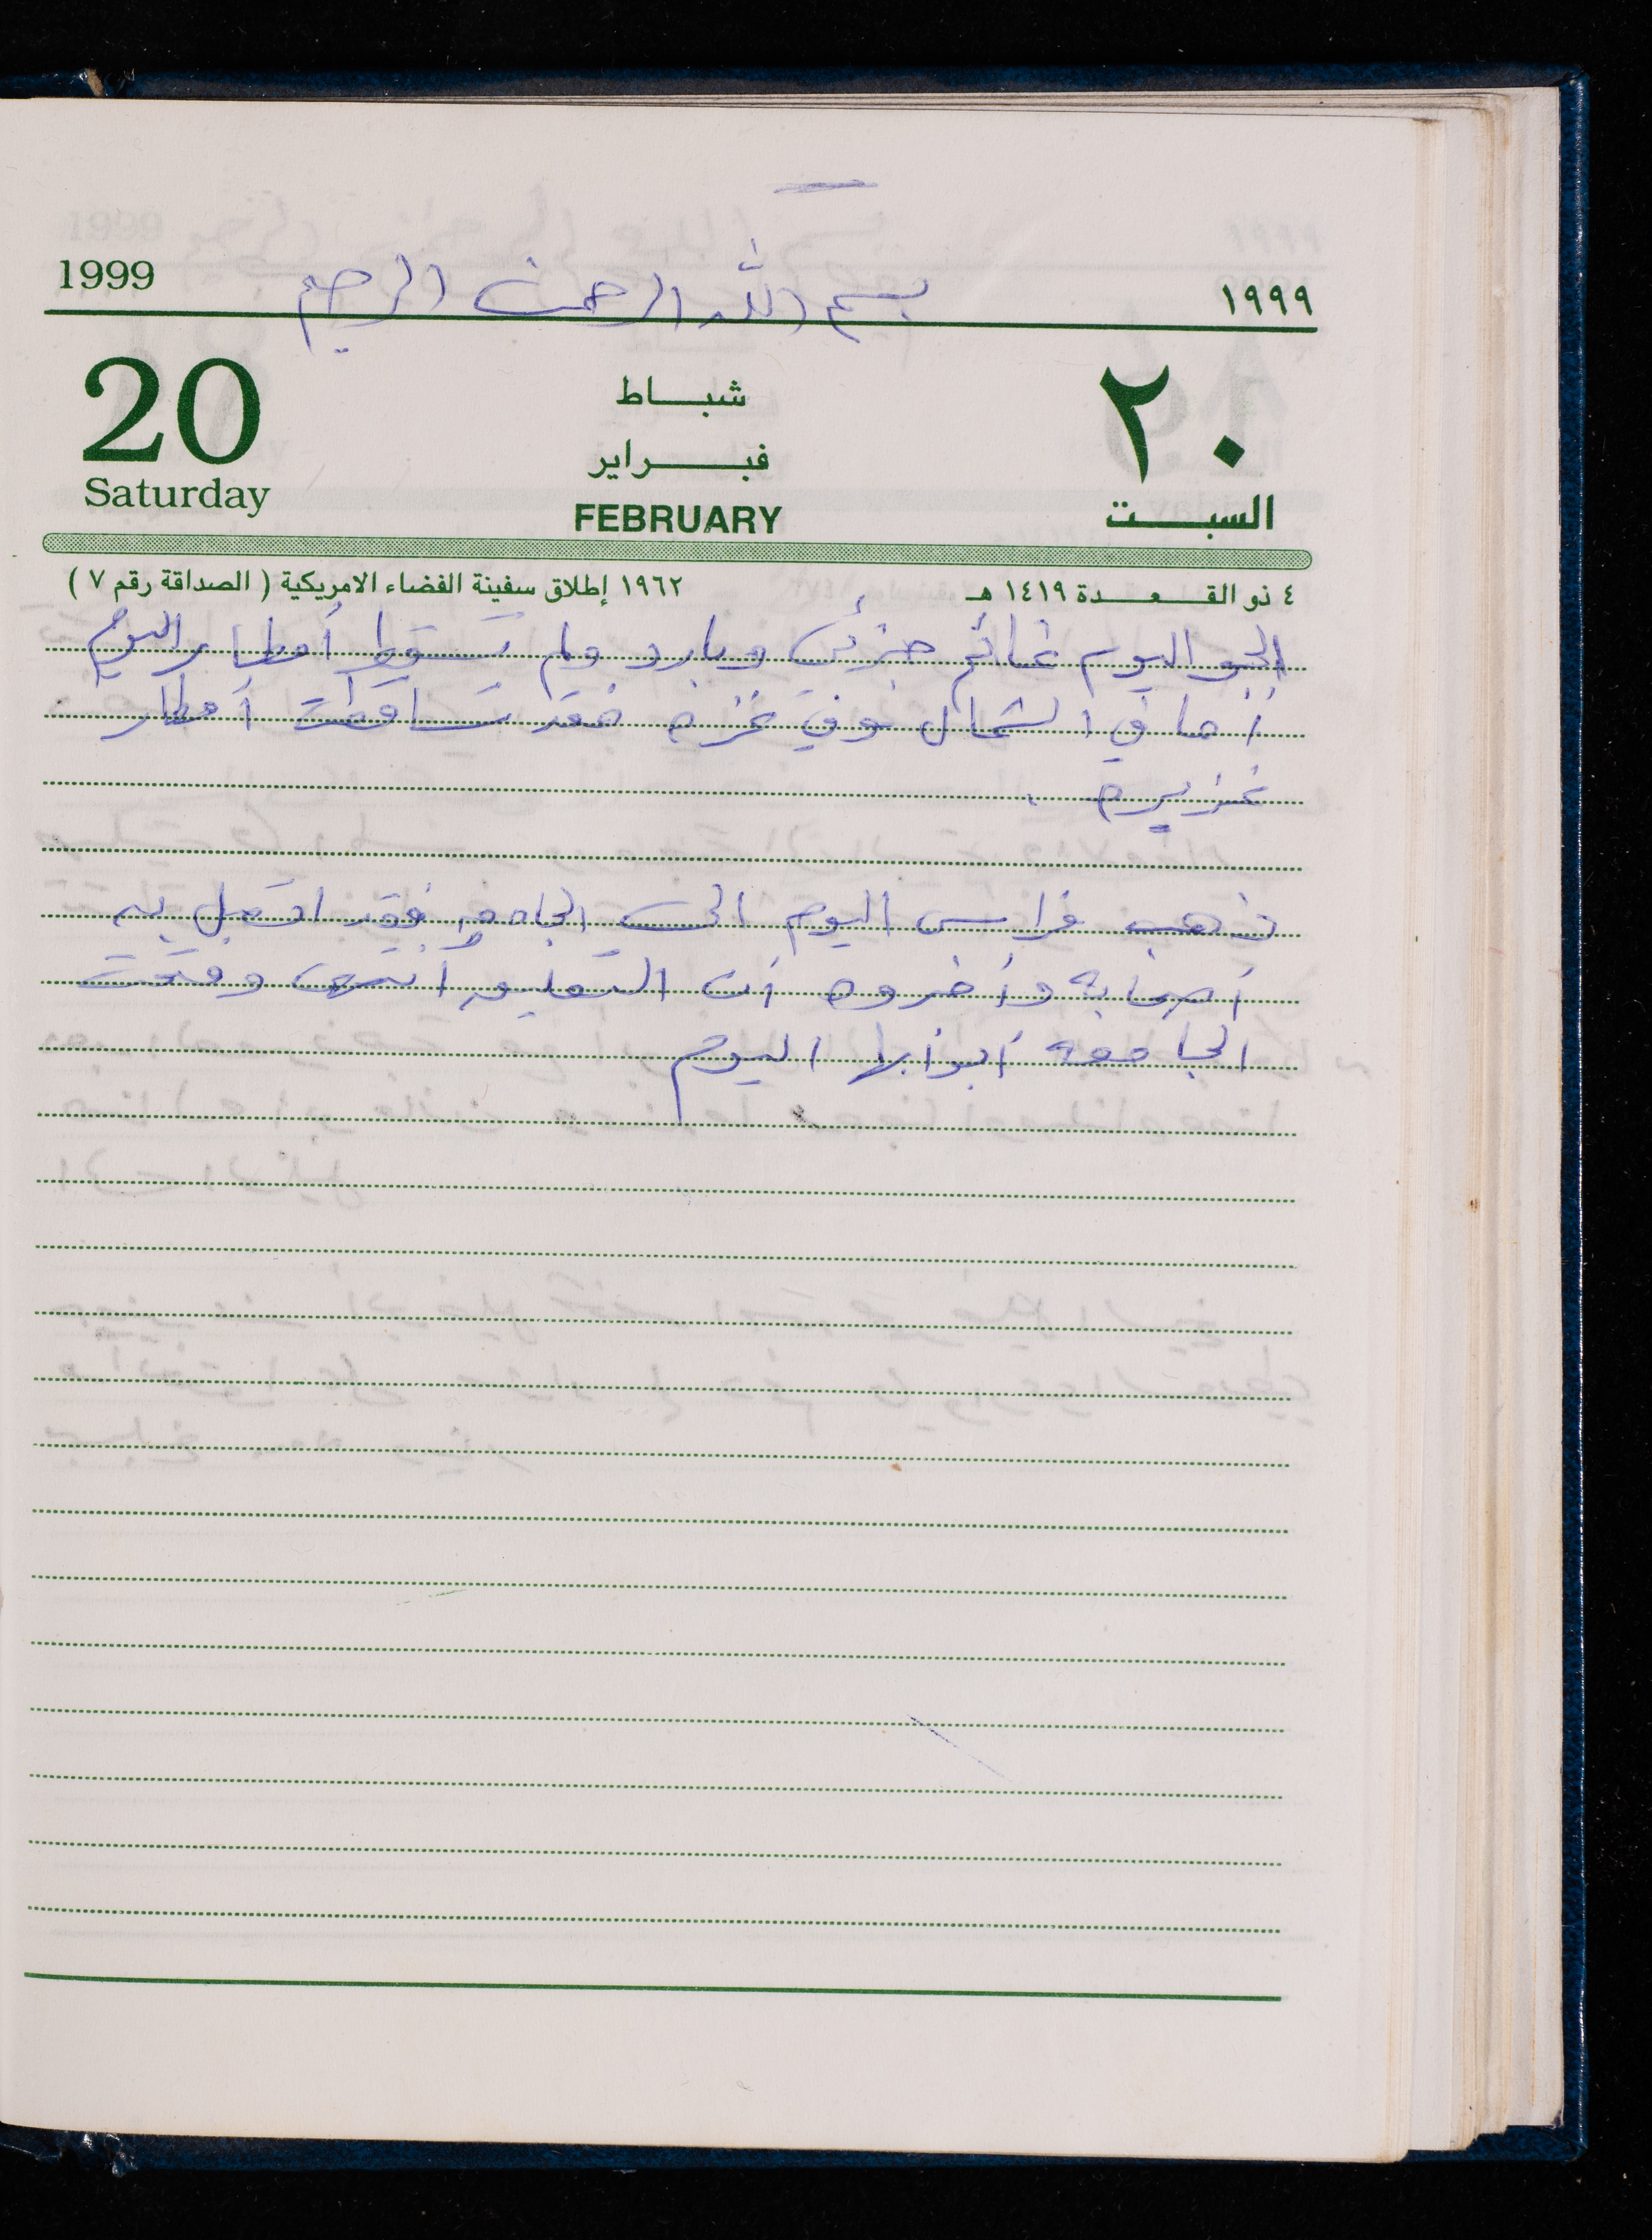 بسم الله الرحمن الرحيم
1999 ١٩٩٩
20 شباط ٢٠
فبراير
Saturday FEBRUARY السبت
٤ ذو القعدة ١٤١٩ هـ ١٩٦٢ إطلاق سفينة الفضاء الامريكية ( الصداقة رقم ٧ )
الجو اليوم غائم جزئى وبارد ولم تسقط أمطار اليوم
أما في الشمال وفي غزه فقد تساقطت أمطار
غزيره .
ذهب فراس اليوم الى الجامعه فقد اتصل به
أصحابه وأخبروه أن التعليق أنتهى وفتحت
الجامعه أبوابها اليوم